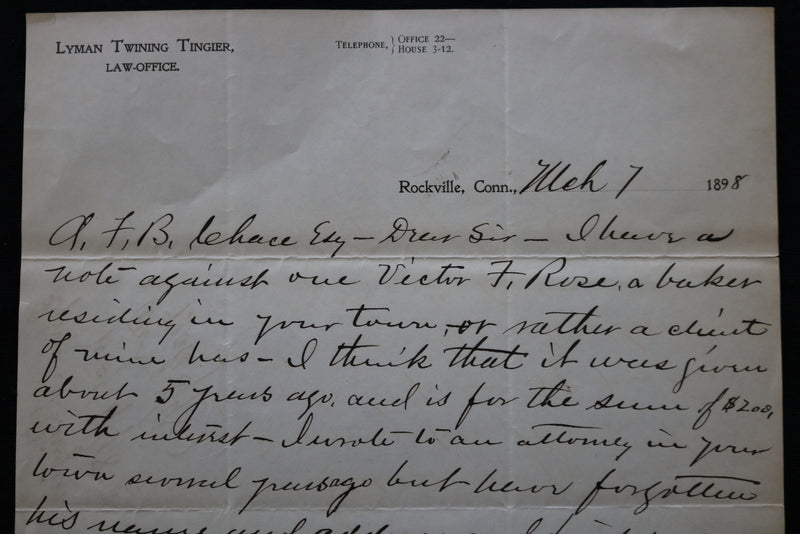 LYMAN TWINING TINGIER,
LAW-OFFICE.
TELEPHONE, { OFFICE 22—
HOUSE 3-12.
Rockville, Conn., Mch 7 1898
A. F. B. Chace Esq — Dear Sir — I have a
note against one Victor F. Rose, a baker
residing in your town, or rather a client
of mine has — I think that it was given
about 5 years ago, and is for the sum of $200,
with interest — I wrote to an attorney in your
town several years ago but have forgotten
his name and address